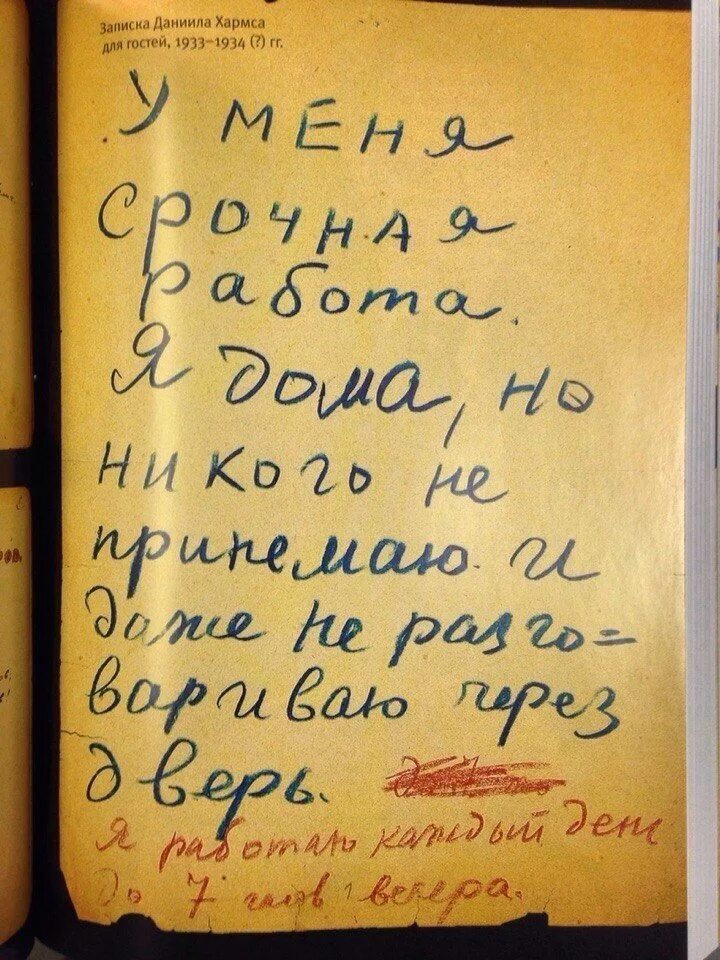 Записка Даниила Хармса
для гостей, 1933–1934 (?) гг.
У МЕНЯ
СРОЧНАЯ
работа.
Я дома, но
никого не
принемаю. и
даже не разго=
вариваю через
дверь.
Я работаю каждый день
до 7 часов вечера.